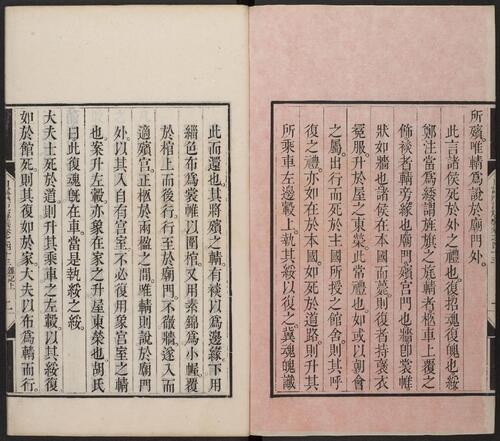 所殯唯輤爲說於廟門外。
此言諸侯死於外之禮也。復招魂復魄也綏
鄭注當爲緌謂旌旗之旄輤者柩車上覆之
飾裧者輤旁緣也廟門殯宮門也牆卽裳帷
狀如牆也諸侯在本國而薨則復者持衮衣
冕服。升於屋之東榮。此常禮也。如或以朝會
之屬。出行而死於主國所授之館舍。則其呼
復之禮。亦如在於本國。如死於道路。則升其
所乘車左邊轂上。執其綏以復之。冀魂魄識
此而還也。其將殯之輤。有裧以爲邊緣。下用
緇色布爲裳帷以圍棺。又用素錦爲小幄。覆
於棺上而後行。行至於廟門。不徹牆。遂入而
適殯宮。正柩於兩楹之間。唯輤則說於廟門
外。以其入自有宮室。不必復用象宮室之輤
也。案升左轂。亦象在家之升屋東榮也。胡氏
曰。此復魂旣在車。當是執綏之綏。
大夫士死於道。則升其乘車之左轂。以其綏復。
如於館死。則其復如於家。大夫以布爲輤而行。